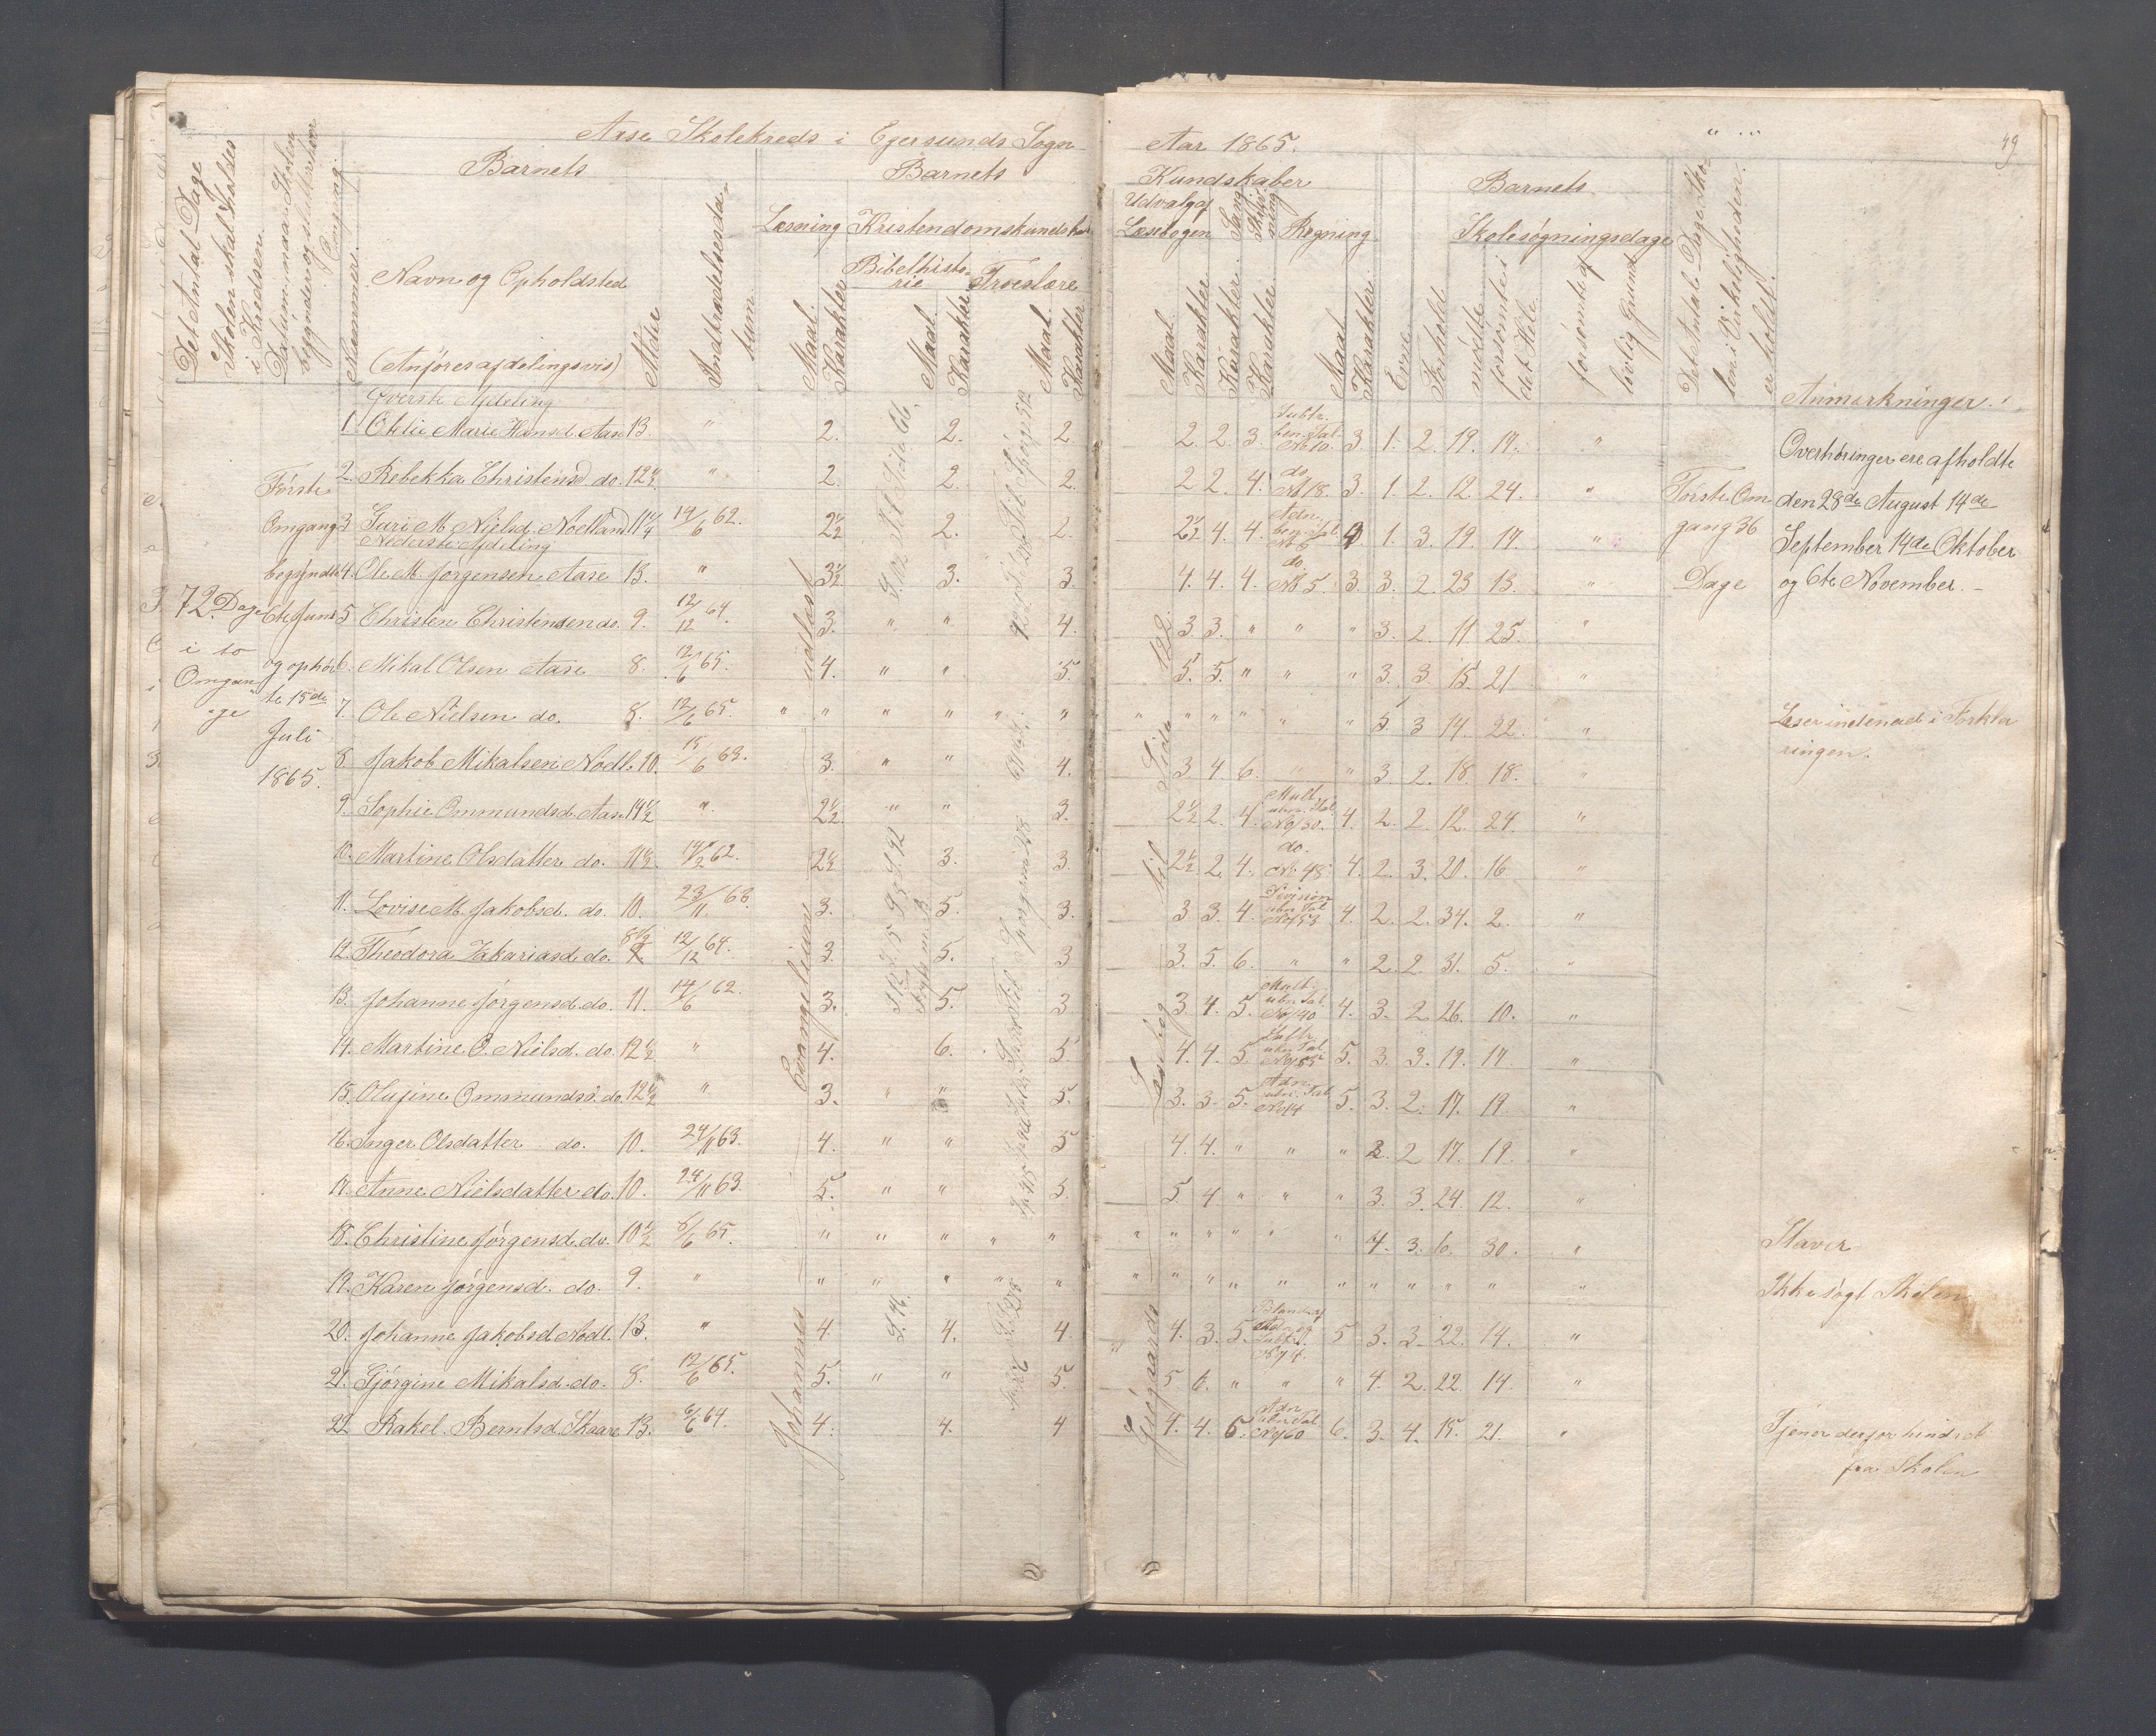 Aase Skolekreds i Egersunds Sogn Aar 1865. 49
Det Antal Dage Skolen skal holdes i Kredsen
Barnets
Nummer
Navn og Opholdsted
(Anføres afdelingsvis)
Alder
Indtrædelsesdatum
Barnets Kundskaber
Læsning
Maal Karakter
Kristendomskundskab
Bibelhistorie
Maal Karakter
Troeslære
Maal Karakter
Udvalg af Læsebogen
Maal Karakter
Sang Karakter
Skrivning Karakter
Regning
Maal Karakter
Evne
Forhold
Barnets Skolesøgningsdage
mødte
forsømte i det Hele
forsømte af lovlig Grund
Det Antal Dage Skolen i Virkeligheden er holdt
Anmærkninger
72 Dage i to Omgange
Første Omgang begyndte 6te Juni og ophørte 15de Juli 1865.
Øverste Afdeling
1. Otilie Marie Hansd. Aase 13. " 2. 2. 2 2. 2. 3. Subtr. ben. Tal No 10. 3 1. 2. 19. 17. "
2. Rebekka Christensd. do. 12 1/2. " 2. 2. 2. 2 2. 4. do No 18. 3. 1. 2. 12. 24. "
3 Juri M. Nielsd. Nodland 11 1/4 14/6 62. 2 1/2 2. 2. 2 1/2 4. 4. Adn. ben. Tal No 5 4 1. 3. 19. 17. "
Nederste Afdeling
4. Ole M. Jørgensen Aase 13. " 3 1/2 3. 3. 4. 4. 4. do. No 5. 3. 3. 2. 23 13. "
5 Christen Christensen do. 9. 12/12 64. 3. " " 4. 3. 3. " " " 3. 2. 11 25. "
6. Mikal Olsen Aase 8. 12/6 65. 4. " " 5. 5. 5. " " " 3. 3. 15. 21. "
7. Ole Nielsen do. 8. 12/6 65. " " " " " " " " " " " " 5. 3 14. 22. "
8 Jakob Mikalsen Nodl. 10. 15/6 63. 3. " " 4. 3. 4. 6. " " 3. 2. 18. 18. "
9. Sophie Ommundsd. Aase 14 1/2 " 2 1/2 " " 3. 2 1/2 2. 4. Mult. ubn. Tal No 30. 4. 2. 2. 12. 24. "
10. Martine Olsdatter do. 11 1/2. 19/2 62. 2 1/2 3. 3. 2 1/2 2. 4. do. No 48 4. 2. 3. 20. 16 "
11. Lovise M. Jakobsd. do. 10. 23/11 63. 3. 5. 3. 3 3. 4. Division ubn Tal No 53 4. 2. 2. 34. 2. "
12. Theodora Zakariasd. do. 8 1/2 12/12 64. 3. 5. 3 3. 5. 6. " " 2. 2. 31. 5. "
13. Johanne Jørgensd. do. 11. 14/6 62. 3. 5. 3 3 4. 5. Mult. ubn Tal No 40 4. 3. 2. 26. 10. "
14. Martine O. Nielsd. do. 12 1/2. " 4. 6. 5 4. 4. 5. Subtr. ubn Tal No 85 5. 3. 3. 19. 17 "
15. Olufine Ommundsd. do. 12 1/2 " 3. " " 5. 3. 3. 5. Adn. ubn. Tal No 14 5. 3. 2. 17. 19. "
16. Inger Olsdatter do. 10. 24/11 63. 4. " " 5 4. 4. " " " 2. 2 17. 19. "
17. Anne Nielsdatter do. 10. 24/11 63. 5. " " 5. 5 4. " " " 3. 3. 24. 12. "
18. Christine Jørgensd. do. 10 1/2 6/6 65. " " " " " " " " " " " 4. 3. 6. 30. "
19. Karen Jørgensd. do. 9. " " " " " " " " " " " " " " " " "
20. Johanne Jakobsd. Nodl. 13. " 4. 4. 4. 4. 3. 5. No 74. 5 3. 3. 22. 14. "
21. Gjørgine Mikalsd. do. 8. 12/6 65. 5. " " 5. 5. 6. " " " 4. 2. 22. 14. "
22. Rakel Berntsd. Skaare 13. 6/6 64. 4. 4. 4 4. 4. 5. Adn ubn Tal No 60 6. 3. 4. 15. 21. "
Evangelium
Johannes
udlæst
Læsebog til Side 132.
Første Omgang 36 Dage
Overhøringer ere afholdte
den 28de August 14de
September 14de Oktober
og 6te November. -
Læser indenad i Forklaringen.
Staver
Ikke søgt Skolen
Tjener derfor hindret
fra Skolen